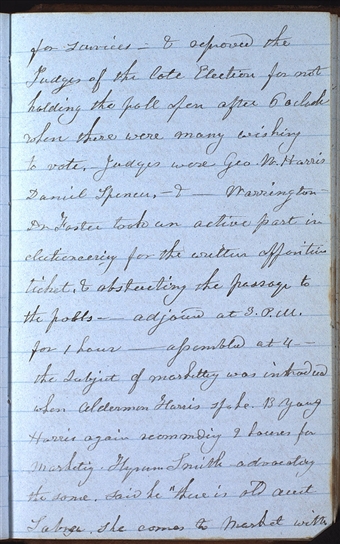 for services — & reproved the
Judges of the late Election for not
holding the poll open after 6 oclock
when there were many wishing
to vote. Judges were Geo. W. Harris
Daniel Spencer, — & — Warrington —
Dr Foster took an active part in
electioneering for the written opposition
ticket. & obstructing the passage to
the polls — adjoured at 3. P.M.
for 1 hour — assembled at 4 —
the subject of marketting was introduced
when Alderman Harris spoke. B Young
Harris again recommdig 2 houses for
Marketig. Hyrum Smith advocatory
the same. said he "there is old aunt
she comes to market with